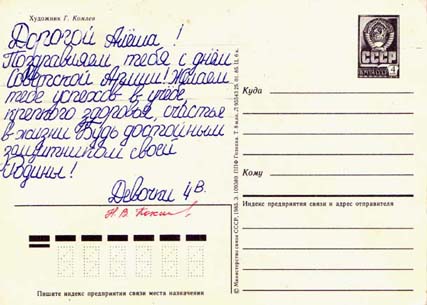 Художник Г. Комлев
Дорогой Алёша !
Поздравляем тебя с днём
Советской Армии! Желаем
тебе успехов в учёбе,
крепкого здоровья, счастья
в жизни. Будь достойным
защитником своей
Родины!
Девочки 4 В.
СССР
4
Куда
Кому
Индекс предприятия связи и адрес отправителя
© Министерство связи СССР, 1983.
Пишите индекс предприятия связи места назначения